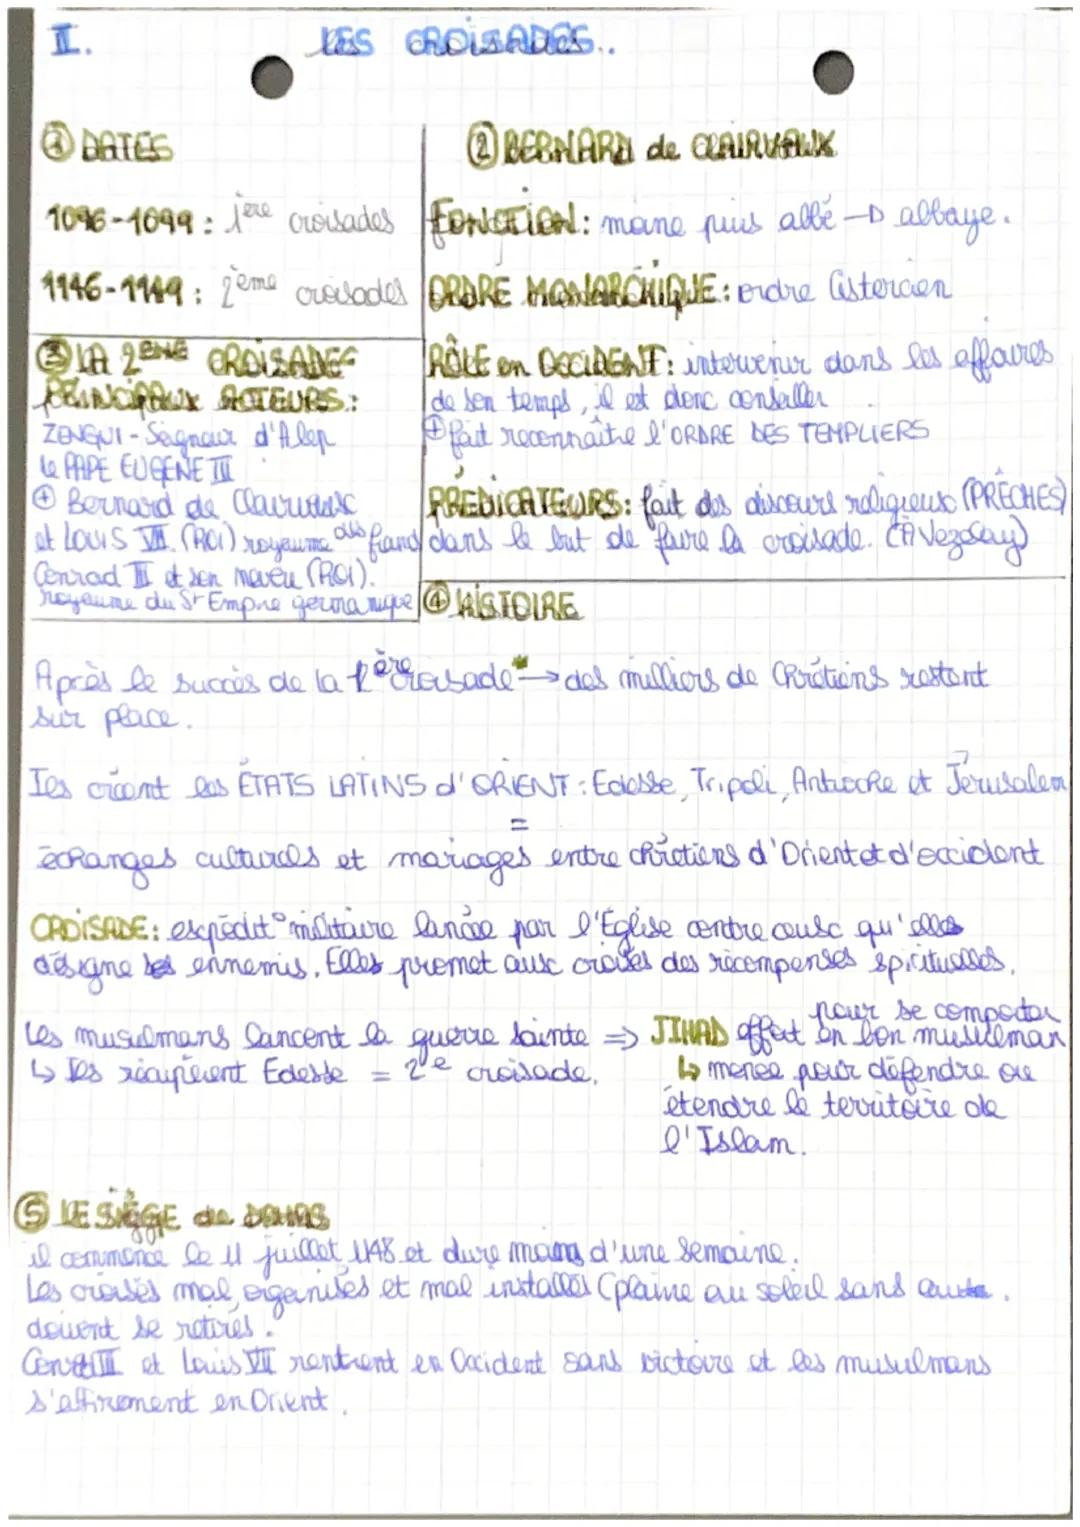 II. LES CROISADES..
① DATES
1096-1099 : 1ère croisades
1146-1149 : 2ème croisades
② BERNARD de CLAIRVAUX
FONCTION : moine puis abbé → abbaye.
ORDRE MONARCHIQUE : ordre Cistercien
RÔLE en OCCIDENT : intervenir dans les affaires
de son temps, il est donc conseiller
⊕ fait reconnaître l'ORDRE DES TEMPLIERS
PRÉDICATEURS : fait des discours religieux (PRÊCHES)
dans le but de faire la croisade. (À Vezelay)
③ LA 2EME CROISADES
PRINCIPAUX ACTEURS :
ZENGUI - Seigneur d'Alep
Le PAPE EUGENE III
⊕ Bernard de Clairvaux
et LOUIS VII. (ROI) royaume des francs
Conrad III et son neveu (ROI).
royaume du St Empire germanique
④ HISTOIRE
Après le succès de la 1ère croisade → des milliers de Chrétiens restent
sur place.
Ils créent les ÉTATS LATINS d'ORIENT : Edesse, Tripoli, Antioche et Jérusalem
=
échanges culturels et mariages entre chrétiens d'Orient et d'occident
CROISADE : expédit° militaire lancée par l'Église contre ceux qu'elles
désigne les ennemis. Elles promet aux croisés des récompenses spirituelles.
Les musulmans lancent la guerre sainte ⇒ JIHAD effort pour se comporter
en bon musulman
↳ Ils récupèrent Edesse = 2e croisade.
↳ menée pour défendre ou
étendre le territoire de
l'Islam.
⑤ LE SIÈGE de DAMAS
il commence le 11 juillet 1148 et dure moins d'une semaine.
Les croisés mal organisés et mal installés (plaine au soleil sans
doivent se retirés.
Conrad III et Louis VII rentrent en Occident sans victoire et les musulmans
s'affirment en Orient.